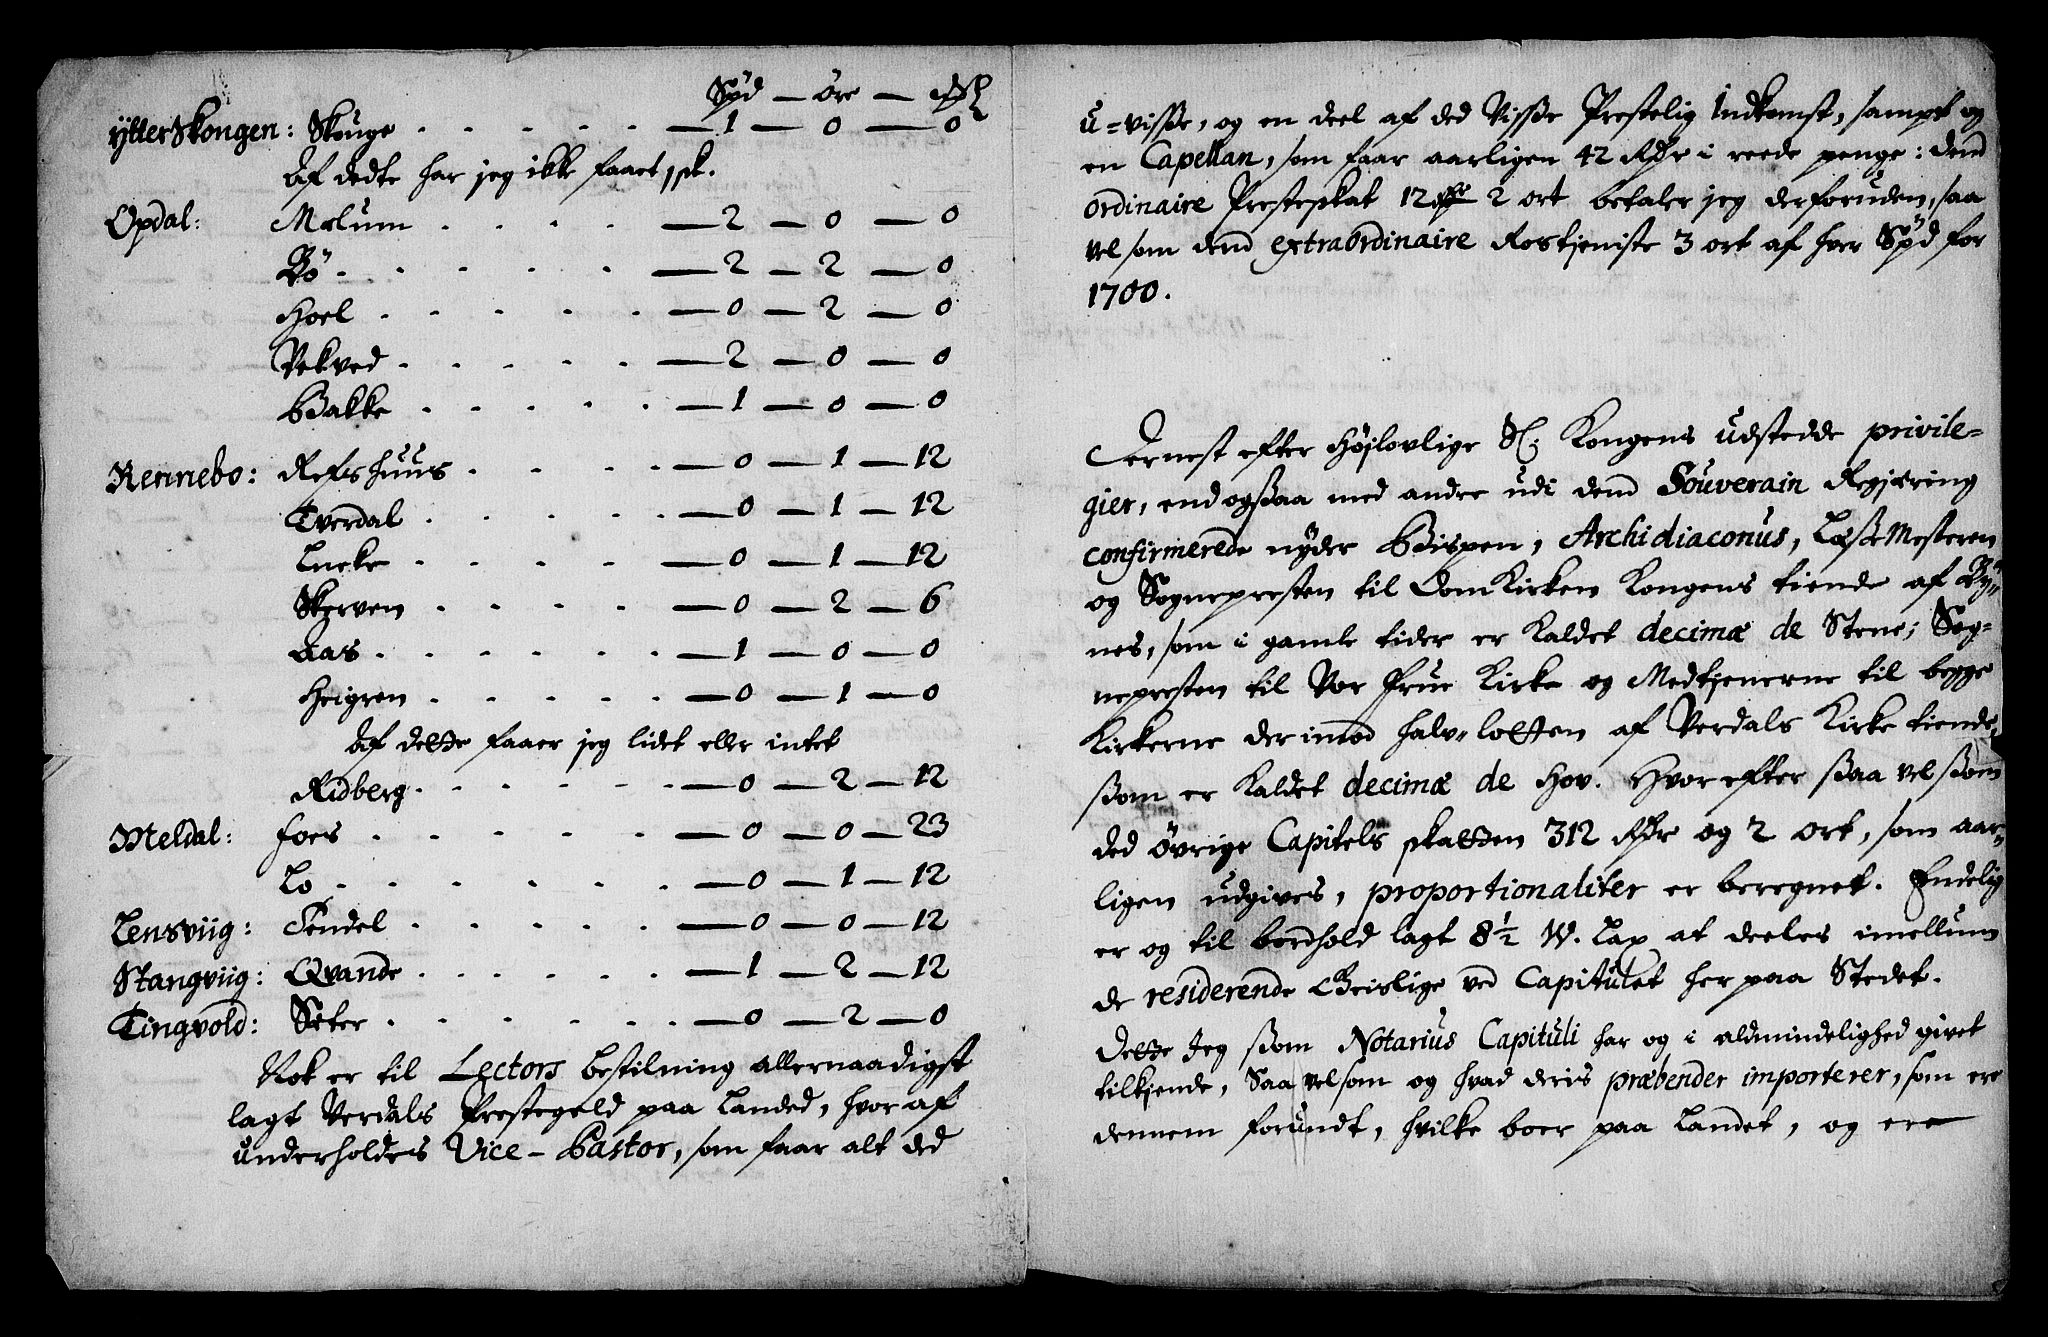 Spd — Öre — Mk
Ytterskongen: Skouge . . . . . — 1 — 0 — 0
Af dedte har jeg ikke faaet 1 sk.
Opdal: Mælum . . . . — 2 — 0 — 0
Bö . . . . . . — 2 — 2 — 0
Hoel . . . . . — 0 — 2 — 0
Vekved . . . . . — 2 — 0 — 0
Bakke . . . . . — 1 — 0 — 0
Rennebo: Refshuus . . . . — 0 — 1 — 12
Tverdal . . . . . — 0 — 1 — 12
Lneke . . . . . — 0 — 1 — 12
Skerven . . . . — 0 — 2 — 6
Aas . . . . . . — 1 — 0 — 0
Heigren . . . . . — 0 — 1 — 0
Af dette faaer jeg lidet eller intet
Ridberg . . . . . . — 0 — 2 — 12
Meldal: Foes . . . . . . — 0 — 0 — 23
Lo . . . . . . . — 0 — 1 — 12
Lensviig: Tendel . . . . . — 0 — 0 — 12
Stangviig: Qvande . . . . . — 1 — 2 — 12
Tingvold: Sæter . . . . . . — 0 — 2 — 0
Nok er til Lectors bestilning allernaadigst
lagt Verdals Prestegeld paa Landed, hvor af
underholdes Vice-Pastor, som faar alt ded
u=visse, og en deel af ded Visse Prestelig Indkomst, sampt og
en Capellan, som faar aarligen 42 Rdr i reede penge: dend
ordinaire Presteskat 12 Rdr 2 ort betaler jeg derforuden, saa
vel som dend extraordinaire Rostjeniste 3 ort af hver Spd for
1700.
Dernest efter Højlovlige Sl. Kongens udstedde privile=
gier, end ogsaa med andre udi dend Souverain Regjæring
confirmerede nyder Bispen, Archidiaconus, Læse Mesteren
og Sognepresten til DomKirken Kongens tiende af By=
nes, som i gamle tider er kaldet decimæ de Stene; Sog=
nepresten til Vor Frue Kirke og Medtjenerne til begge
Kirkerne der imod halv-lotten af Verdals Kirke tiende,
som er kaldet decimæ de Hov. Hvor efter saa vel som
ded övrige Capitels skatten 312 Rdr og 2 ort, som aar=
ligen udgives, proportionaliter er beregnet. Endelig
er og til bordhold lagt 8½ W. Lax at deeles imellum
de residerende Geislige ved Capitulet her paa Stedet.
Dette Jeg som Notarius Capituli har og i almindelighed givet
tilkjende, Saa vel som og hvad deris præbender importerer, som ere
dennem forundt, hvilke boer paa Landet, og ere